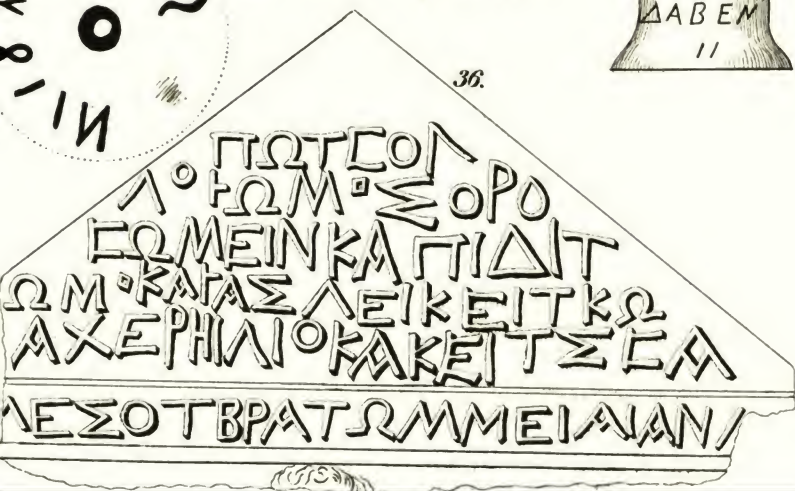 ΔΑΒΕΝ
II
36.
ΠΩΤ⊏ΟΛ
ΛΟ⊢ΩΜ▫ΣΟΡΟ
⊏ΩΜΕΙΝΚΑΠΙΔΙΤ
ΩΜ▫ΚΑ⊢ΑΣΛΕΙΚΕΙΤΚΩ
ΑΧΕΡΗΙΛΙΟΚΑΚΕΙΤΣ⊏Α
ΛΕΣΟΤΒΡΑΤΩΜΜΕΙΑΙΑΝ